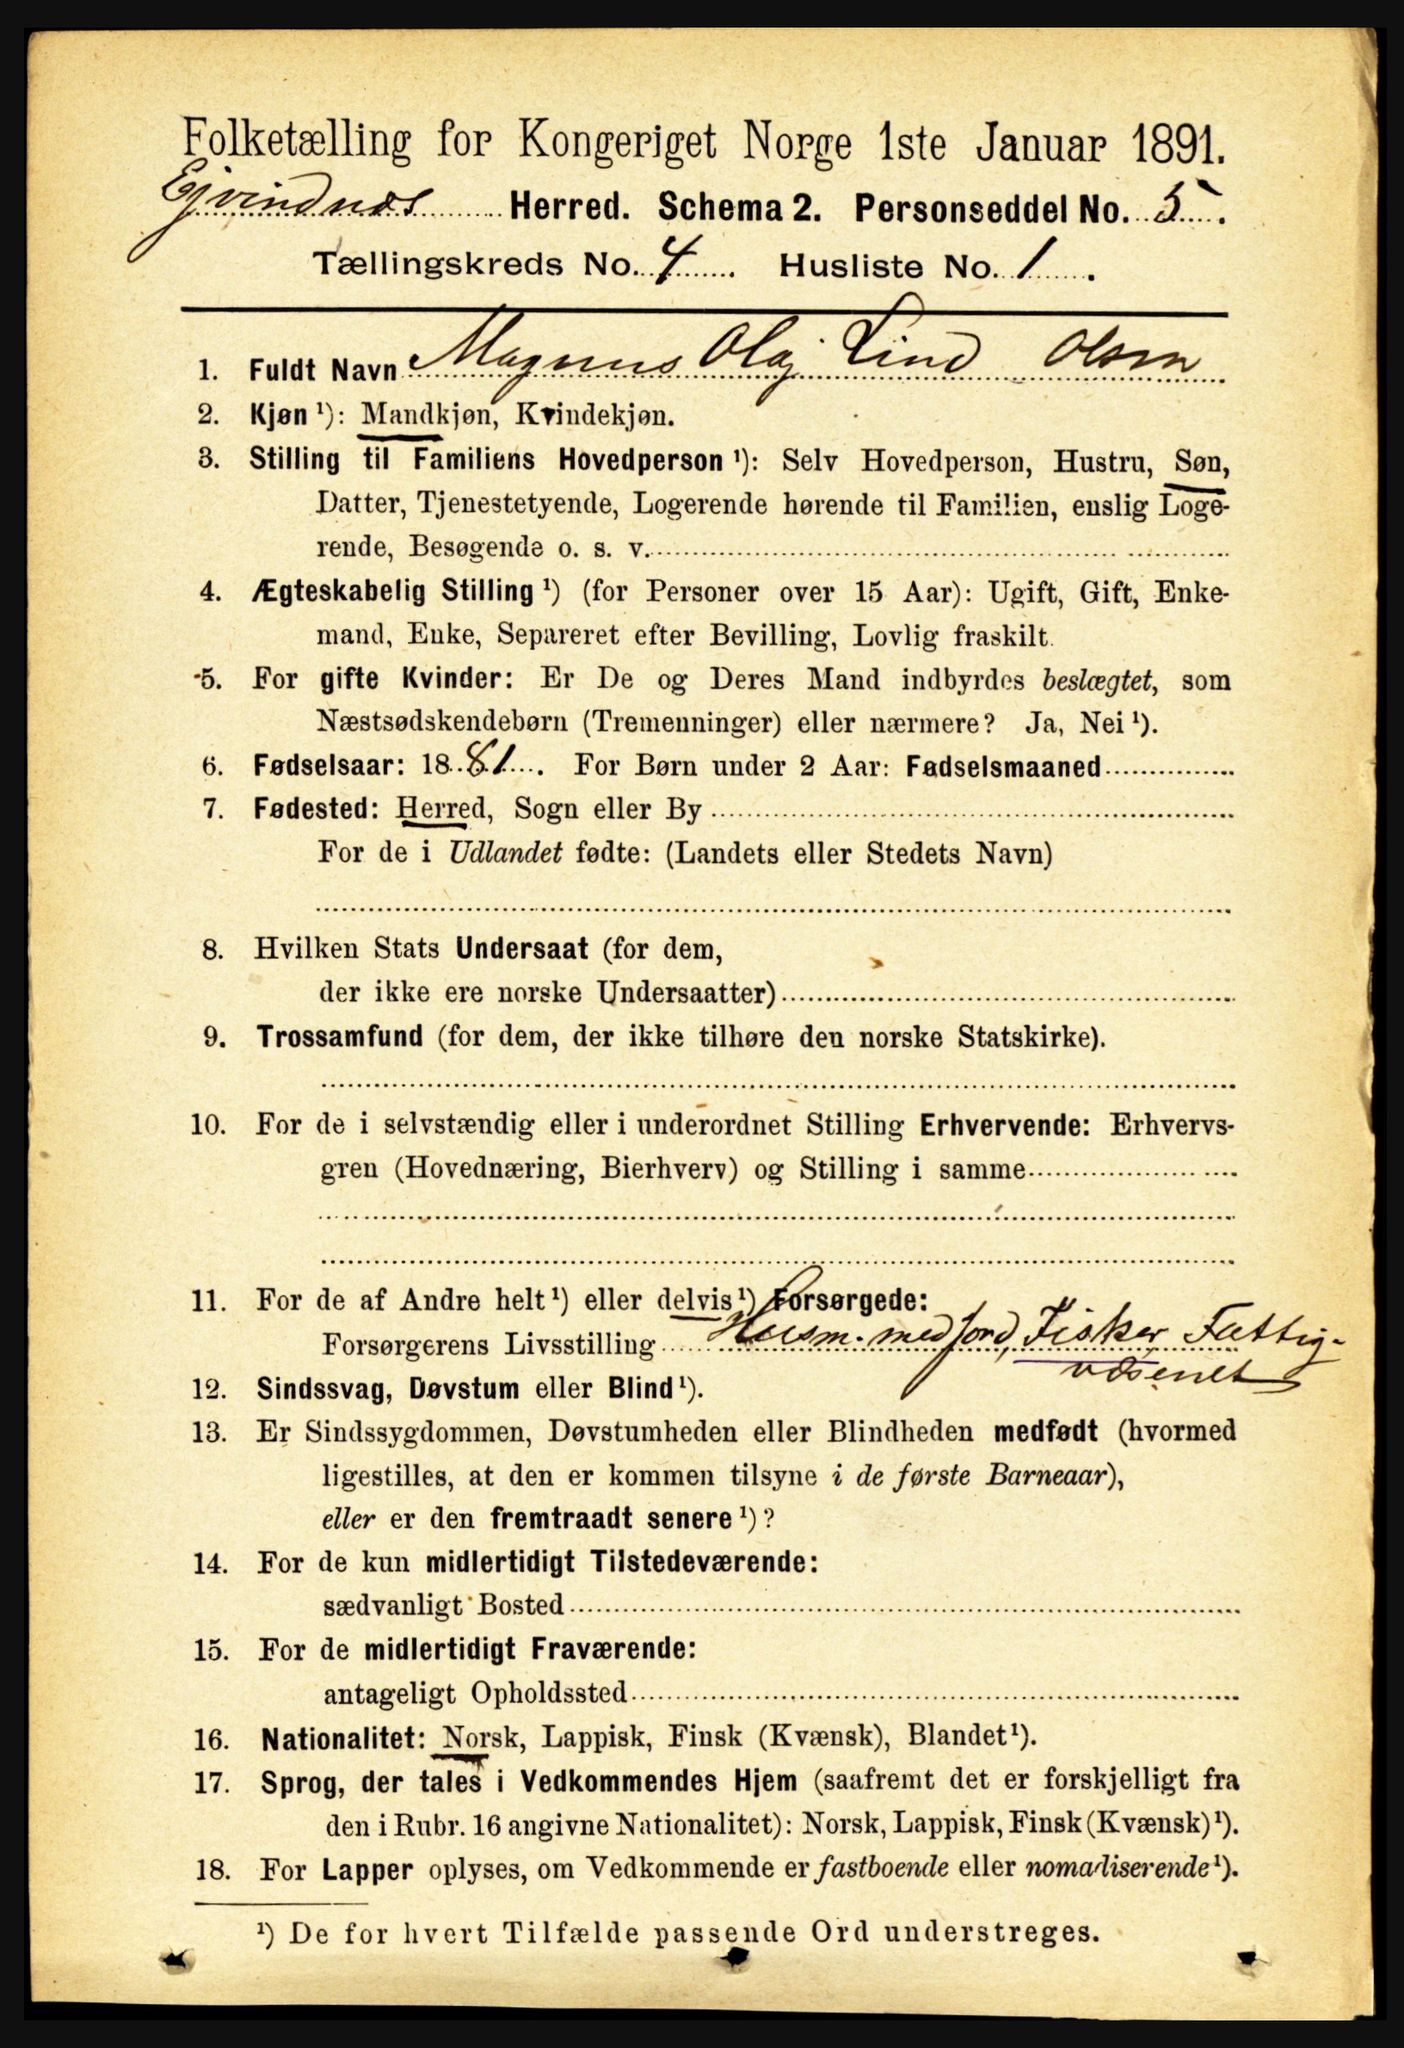 Folketælling for Kongeriget Norge 1ste Januar 1891.
Ejvindnæs Herred. Schema 2. Personseddel No. 5.
Tællingskreds No. 4. Husliste No. 1.
1. Fuldt Navn Magnus Olaj Lind Olsen
2. Kjøn ¹): Mandkjøn, Kvindekjøn.
3. Stilling til Familiens Hovedperson ¹): Selv Hovedperson, Hustru, Søn,
Datter, Tjenestetyende, Logerende hørende til Familien, enslig Loge-
rende, Besøgende o. s. v.
4. Ægteskabelig Stilling ¹) (for Personer over 15 Aar): Ugift, Gift, Enke-
mand, Enke, Separeret efter Bevilling, Lovlig fraskilt.
5. For gifte Kvinder: Er De og Deres Mand indbyrdes beslægtet, som
Næstsødskendebørn (Tremenninger) eller nærmere? Ja, Nei ¹).
6. Fødselsaar: 1881. For Børn under 2 Aar: Fødselsmaaned
7. Fødested: Herred, Sogn eller By
For de i Udlandet fødte: (Landets eller Stedets Navn)
8. Hvilken Stats Undersaat (for dem,
der ikke ere norske Undersaatter)
9. Trossamfund (for dem, der ikke tilhøre den norske Statskirke).
10. For de i selvstændig eller i underordnet Stilling Erhvervende: Erhvervs-
gren (Hovednæring, Bierhverv) og Stilling i samme
11. For de af Andre helt ¹) eller delvis ¹) Forsørgede:
Forsørgerens Livsstilling Husm. med jord, Fisker, Fattig-
væsenet
12. Sindssvag, Døvstum eller Blind ¹).
13. Er Sindssygdommen, Døvstumheden eller Blindheden medfødt (hvormed
ligestilles, at den er kommen tilsyne i de første Barneaar),
eller er den fremtraadt senere ¹)?
14. For de kun midlertidigt Tilstedeværende:
sædvanligt Bosted
15. For de midlertidigt Fraværende:
antageligt Opholdssted
16. Nationalitet: Norsk, Lappisk, Finsk (Kvænsk), Blandet ¹).
17. Sprog, der tales i Vedkommendes Hjem (saafremt det er forskjelligt fra
den i Rubr. 16 angivne Nationalitet): Norsk, Lappisk, Finsk (Kvænsk) ¹).
18. For Lapper oplyses, om Vedkommende er fastboende eller nomadiserende ¹).
¹) De for hvert Tilfælde passende Ord understreges.